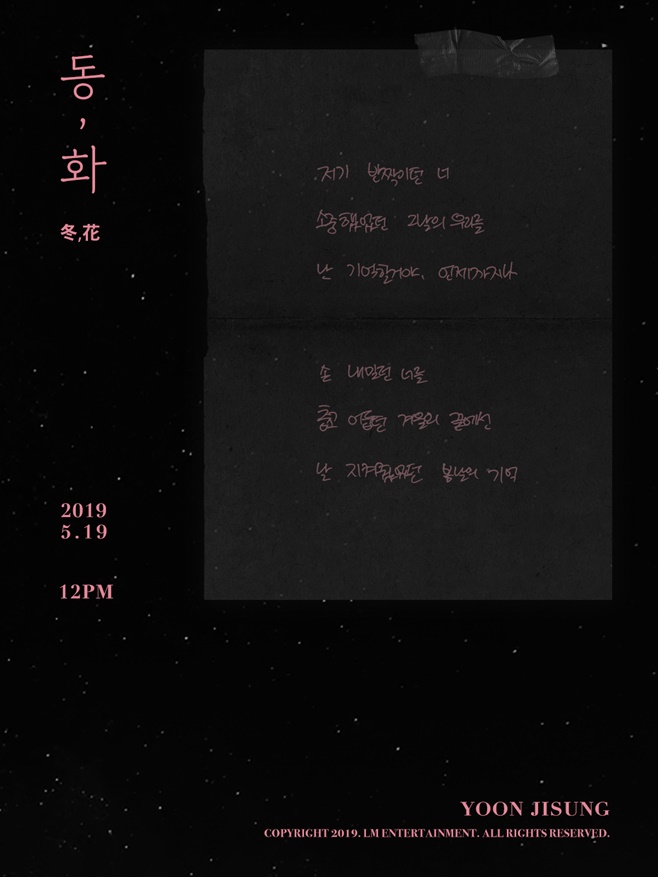 동,
화
冬,花
저기 반짝이던 너
소중했었던 그날의 우리를
난 기억할거야, 언제까지나
손 내밀던 너를
춥고 어둡던 겨울의 끝에선
난 봄날의 기억
2019
5.19
12PM
YOON JISUNG
COPYRIGHT 2019. LM ENTERTAINMENT. ALL RIGHTS RESERVED.